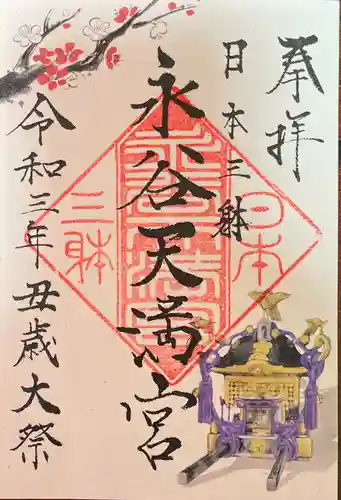 奉拝
日本三躰
永谷天満宮
令和三年 丑歳大祭
日本
三躰